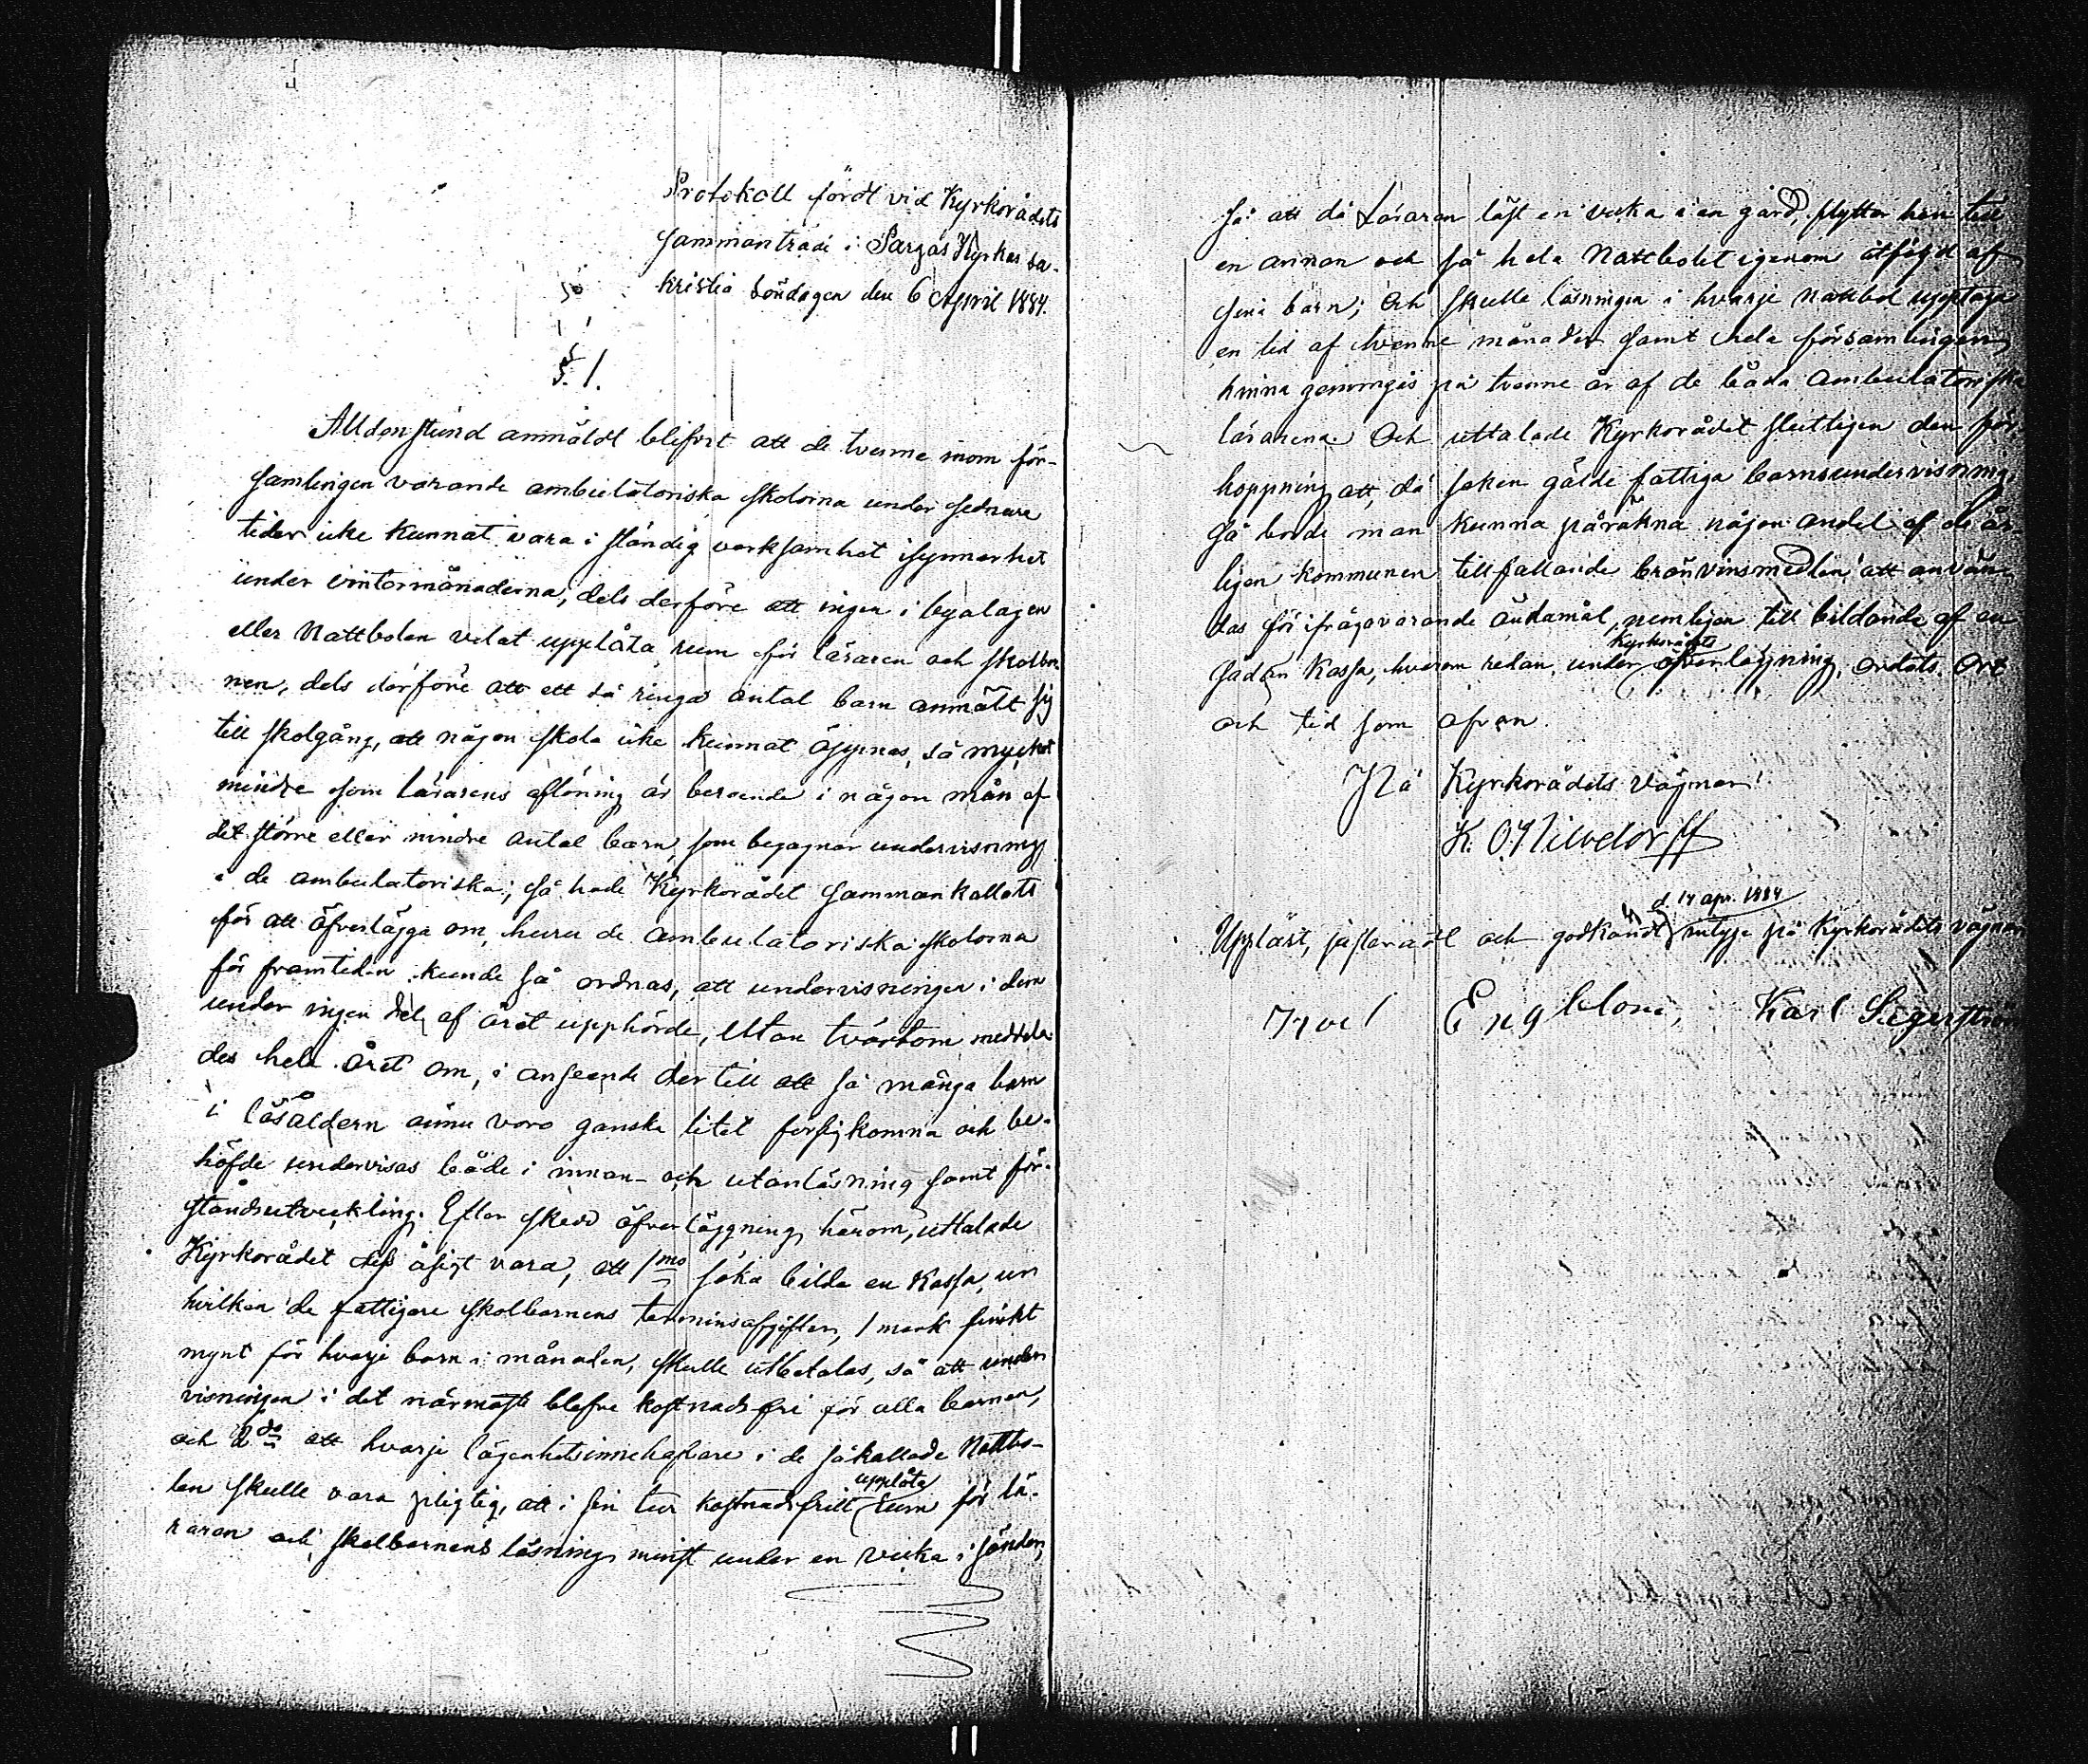 Protokoll fördt vid Kyrkorådets
sammanträde i Pargas Kyrkas sa-
kristia söndagen den 6 April 1884.
§. 1.
Alldenstund anmäldt blifvit att de tvenne inom för-
samlingen varande ambulatoriska skolorna under sednare
tider icke kunnat vara i ständig verksamhet isynnerhet
under vintermånaderna, dels derföre att ingen i byalagen
eller Nattbolen velat upplåta rum för läraren och skolbar
nen, dels derföre att ett så ringa antal barn anmält sig
till skolgång, att någon skola icke kunnat öppnas, så mycket
mindre som lärarens aflöning är beroende i någon mån af
det större eller mindre antal barn, som begagnar undervisning
i de ambulatoriska; så hade Kyrkorådet sammankallats
för att öfverlägga om, huru de ambulatoriska skolorna
för framtiden kunde så ordnas, att undervisningen i dem
under ingen del af året upphörde, utan tvärtom meddela-
des hela året om, i anseende dertill att så många barn
i läsåldern ännu voro ganska litet försigkomna och be-
höfde undervisas både i innan- och utanläsning samt för-
ståndsutveckling. Efter skedd öfverläggning härom, uttalade
Kyrkorådet dess åsigt vara, att 1mo söka bilda en Kassa, ur
hvilken de fattigare skolbarnens terminsafgifter, 1 mark finskt
mynt för hvarje barn i månaden, skulle utbetalas, så att under
visningen i det närmaste blefve kostnadsfri för alla barnen,
och 2do att hvarje lägenhetsinnehafvare i de såkallade Nattbo-
len skulle vara pligtig, att i sin tur kostnadsfritt upplåta rum för lä-
raren och skolbarnens läsning minst under en vecka i sänder,
så att då Läraren läst en vecka i en gård, flyttar han till
en annan och så hela Nattbolet igenom åtföljd af
sina barn; Och skulle läsningen i hvarje nattbol upptaga
en tid af tvenne månader samt hela församlingen
hinna genomgås på tvenne år af de båda ambulatoriska
lärarena. Och uttalade Kyrkorådet slutligen den för-
hoppning att, då saken gälde fattiga barns undervisning,
så borde man kunna påräkna någon andel af de år-
ligen kommunen tillfallande bränvinsmedlen att använ-
das för ifrågavarande ändamål, nemligen till bildande af en
sådan Kassa, hvarom redan under Kyrkorådets öfverläggning ordats. Ort
och tid som ofvan.
På Kyrkorådets vägnar:
Uppläst, justeradt och godkändt d. 14 apr. 1884 intyga på Kyrkorådets vägnar
Engblom, Karl Segerström